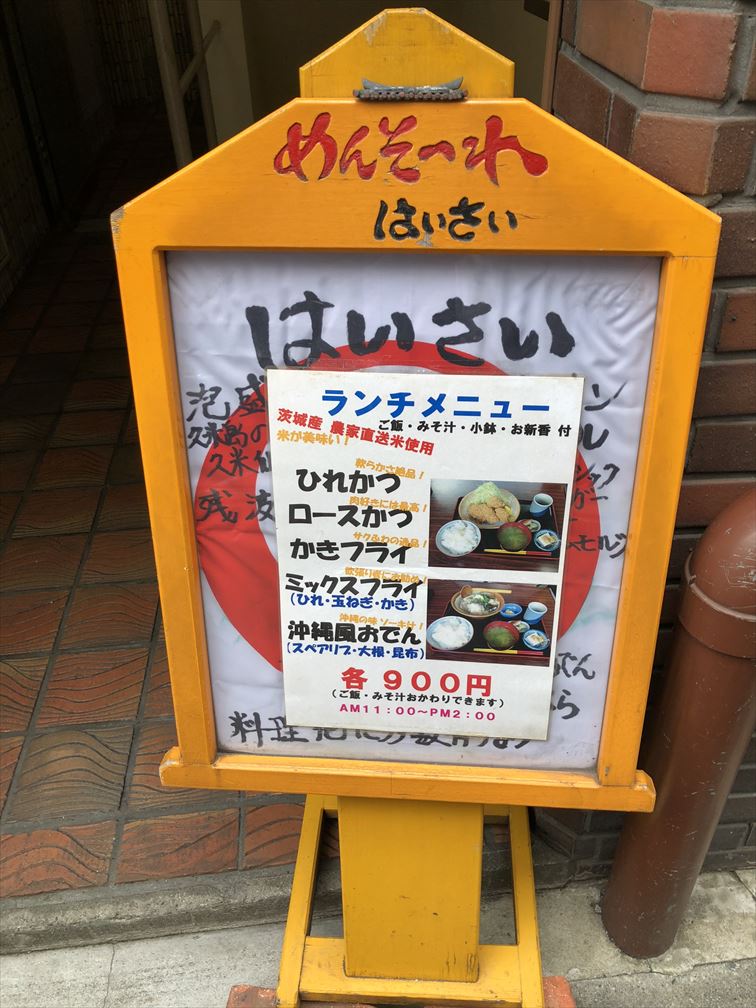 めんそーれ
はいさい
はいさい
泡盛
久米島の
久米仙
残波
ランチメニュー
ご飯・みそ汁・小鉢・お新香 付
茨城産 農家直送米使用
米が美味い！
軟らかさ絶品！
ひれかつ
肉好きには最高！
ロースかつ
サクふわの逸品！
かきフライ
欲張り者にお勧め！
ミックスフライ
(ひれ・玉ねぎ・かき)
沖縄の味 ソーキ汁！
沖縄風おでん
(スペアリブ・大根・昆布)
各 900円
(ご飯・みそ汁おかわりできます)
AM11：00〜PM2：00
料理